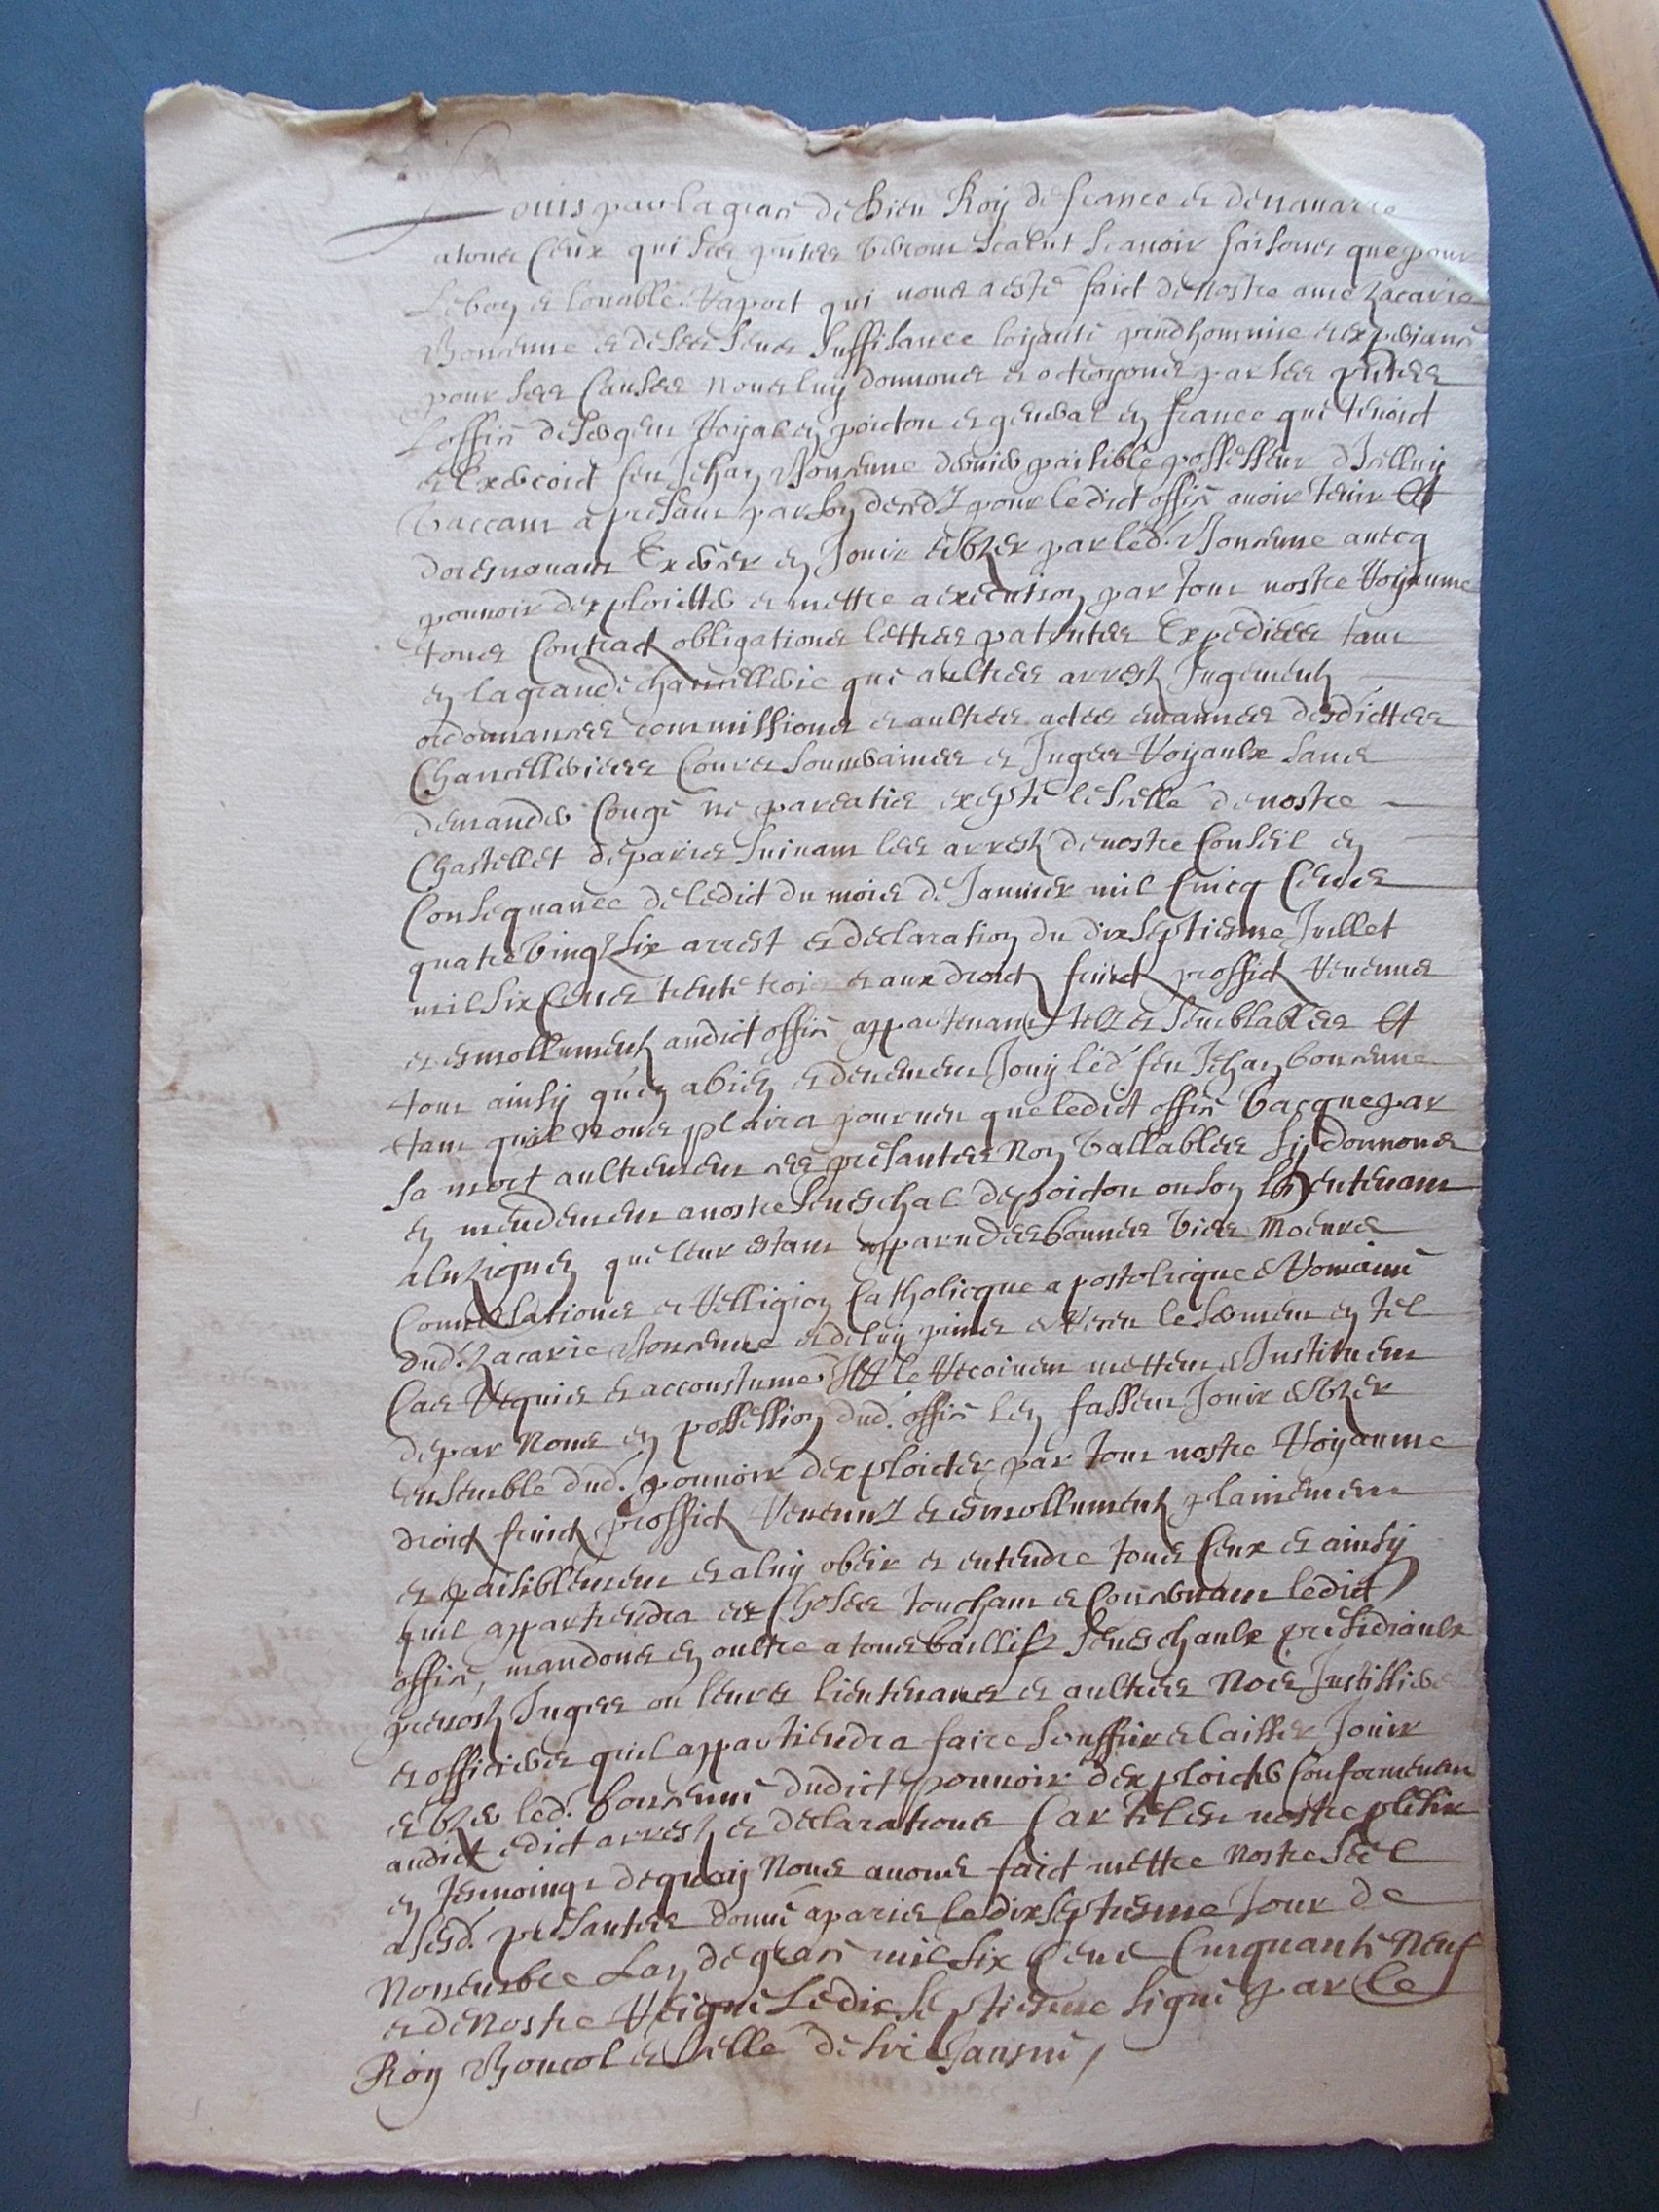 Louis par la grace de Dieu Roy de france et de navarre
a tous ceux qui ses pntes verront scalut scavoir faisons que pour
le bon et louable raport qui nous a esté faict de nostre amé Zacarie
Bonenne et de ses sens suffisance loyauté prudhommie et experiance
pour ses causes nous luy donnons et octroyons par ses pntes
l'office de sergent royal en poictou et general en france que tenoit
et Exercoit feu Jehan Bonenne dernier paisible possesseur d'Icelluy
vaccant a presant par son deceds pour ledict office avoir tenir et
doresnavant Exercer en Jouir et Uzer par led. Bonenne avecq
pouvoir d'exploitter et mettre a execution par tout nostre Royaume
tous contractz obligations lettres patentes Expediees tant
en la grande chancellerie que aultres arrestz Jugementz
ordonnances commissions et aultres actes emannes desdictes
Chancelleries Cours souveraines et Juges Royaulx sans
demander congé ne pareatis exepté le scellé de nostre
Chastellet de paris suivant les arrestz de nostre Conseil en
Consequance de ledict du mois de Janvier mil cincq cens
quatre vingtz six arrest et declaration du dixseptiesme Juillet
mil six cens trente trois et aux droictz fruictz proffictz revenus
et esmollumentz audict office appartenans telz et semblables et
tout ainsy qu'en a bien et deuement Jouy led. feu Jehan bonenne
tant quil nous plaira pourveu que ledict office vacque par
sa mort aultrement ces presantes non vallables Sy donnons
en mendement a nostre seneschal de poictou ou son lieutenant
a luzignen que leur estant apparu des bonnes vies moeurs
Conversations et relligion catholicque apostolicque et romaine
dud. Zacarie Bonenne et de luy prins et receu le serment en tel
cas requis et accoustumé Ilz le recoivent mettent et Instituent
de par nous en possession dud. office l'en fassent Jouir et Uzer
ensemble dud. pouvoir d'exploicter par tout nostre Royaume
droictz fruictz proffictz revenuz et esmollumentz plainement
et paisiblement et a luy obeir et entendre tous ceux et ainsy
quil appartiendra es choses touchant et concernant ledict
office, mandons en oultre a tous baillifz seneschaulx presidiaulx
prevostz Juges ou leurs lieutenans et aultres nos Justissiers
et officiers quil appartiendra faire souffrir et laisser Jouir
et Uzer led. bonenne dudict pouvoir d'exploicter conformement
audict edict arrestz et declarations Car tel est nostre plesir
en tesmoingt de quoy nous avons faict mettre nostre scel
a sesd. presantes donné a paris le dixseptiesme Jour de
novembre l'an de grace mil six cens cinquante neuf
et de nostre reigne le dixseptiesme signé par le
Roy Boucol et scellé de sire Jausne /